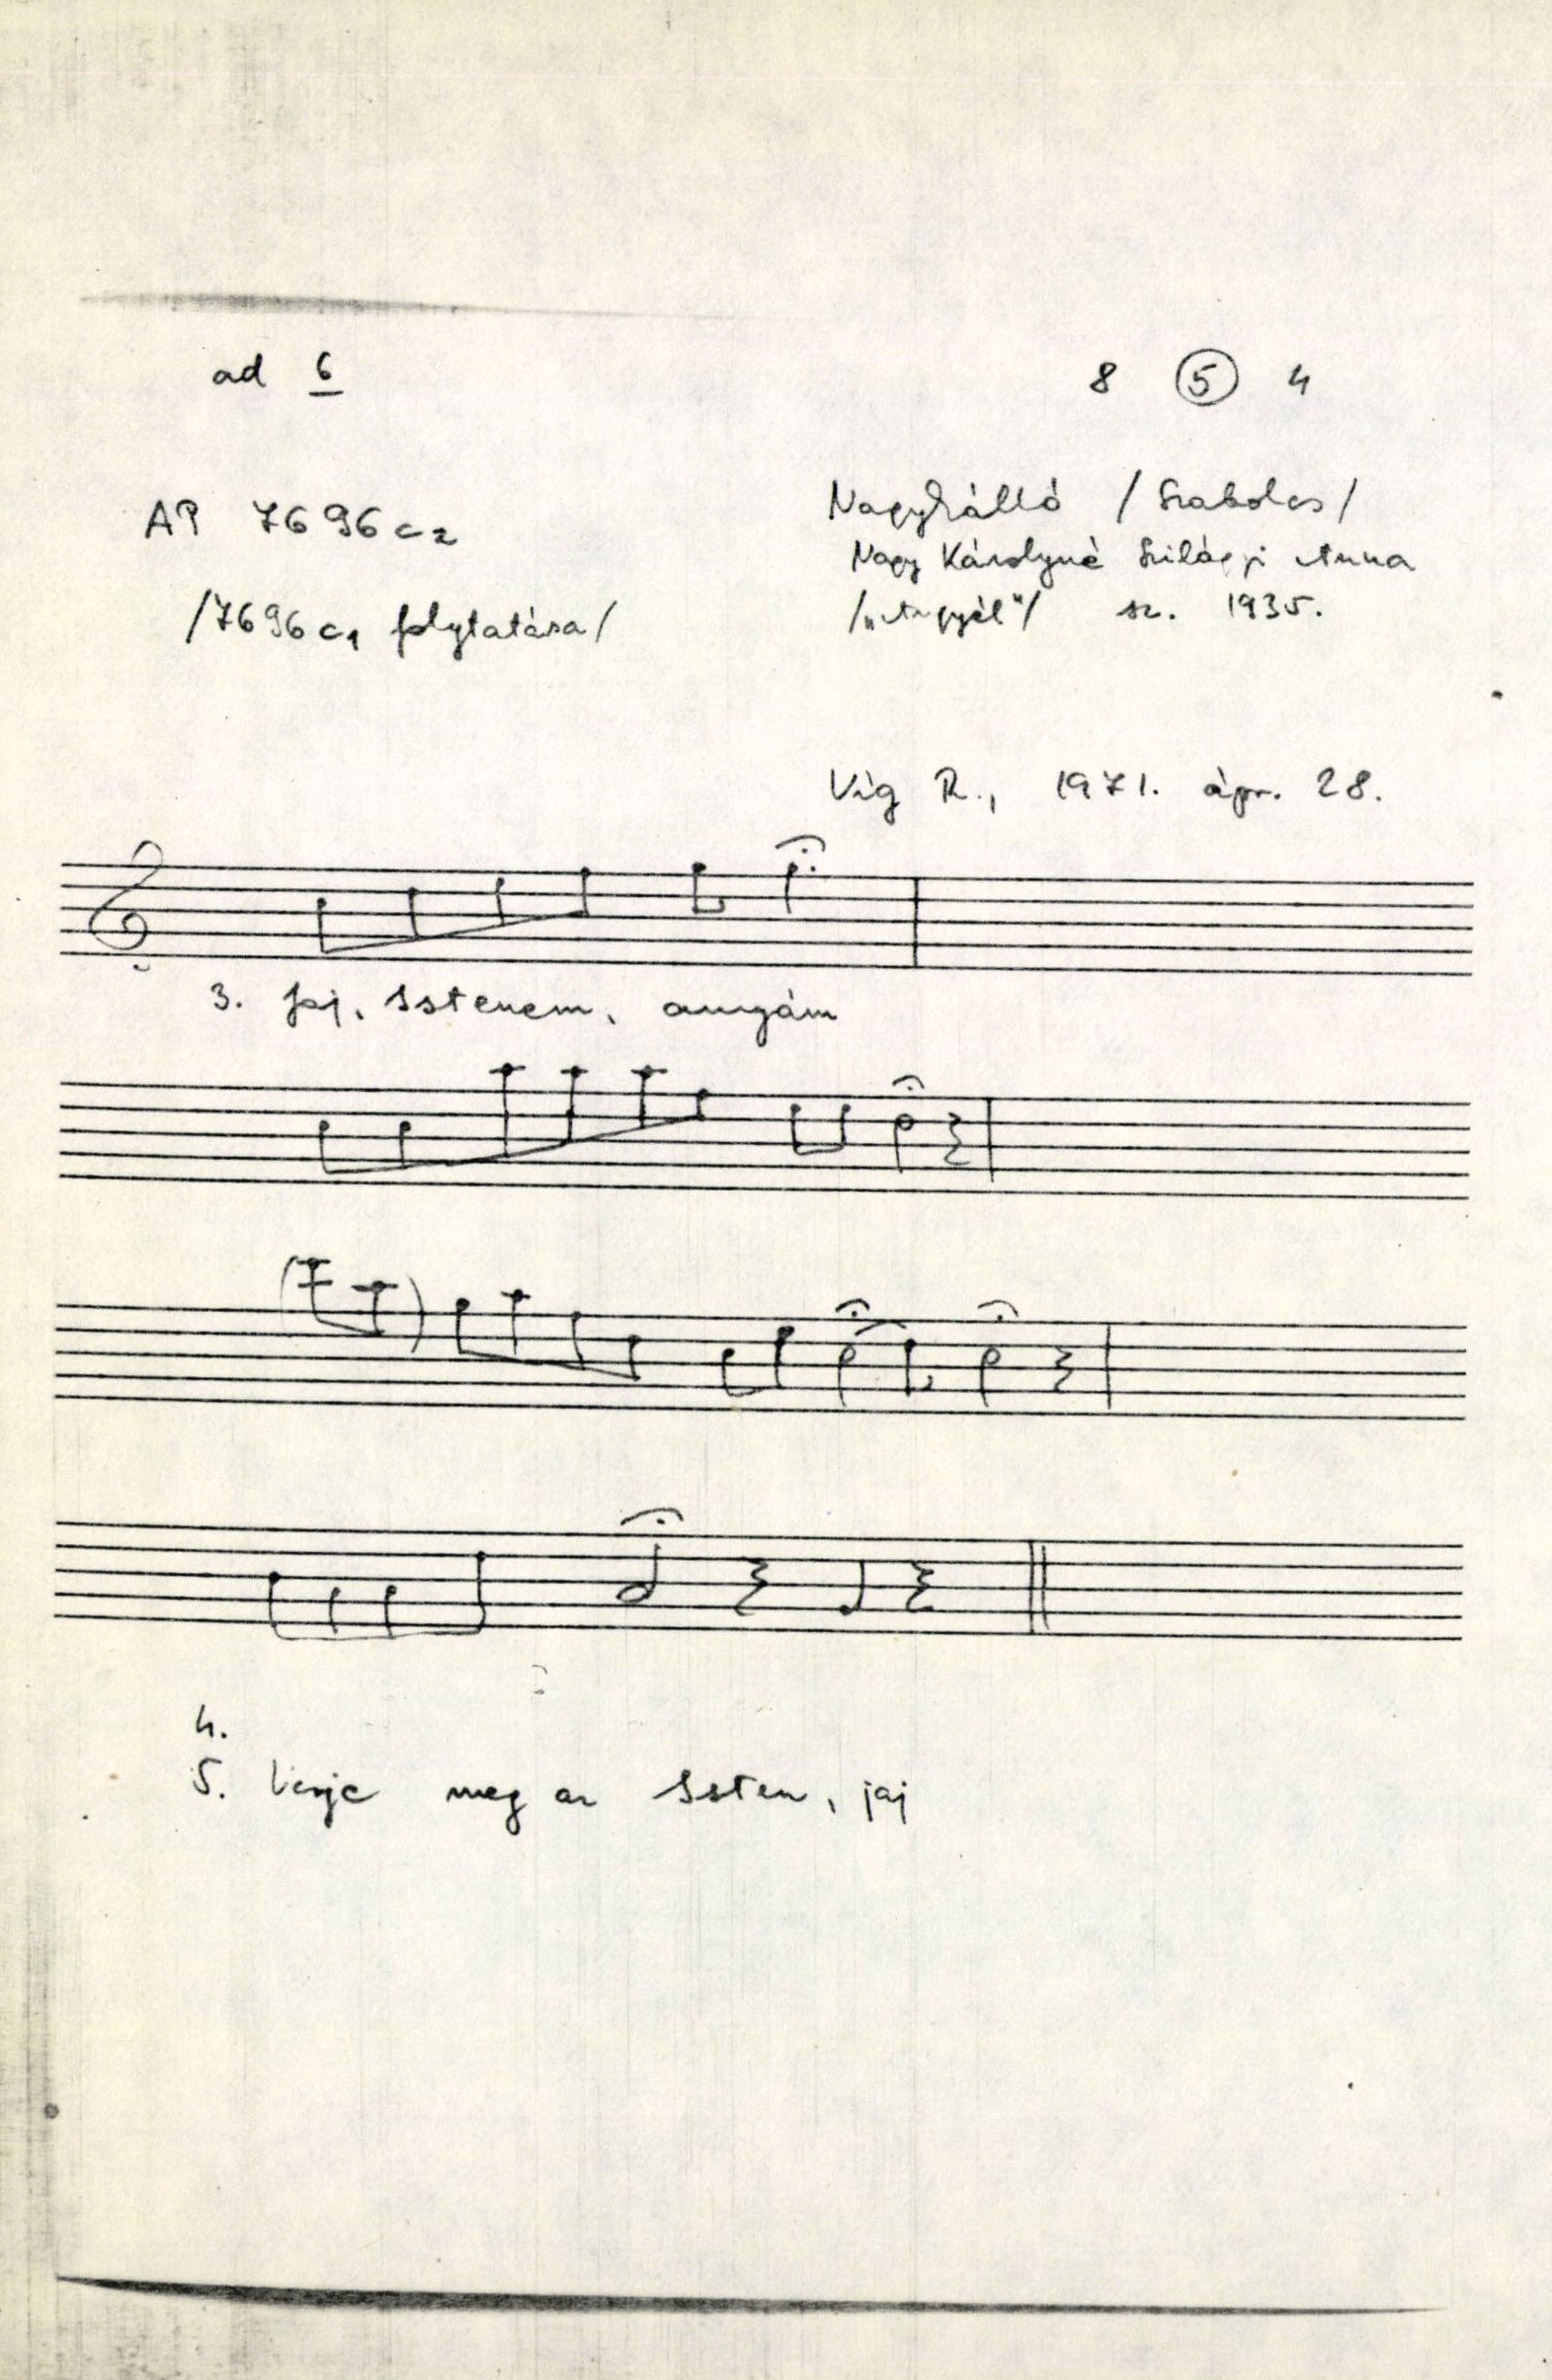 ad 6
8 5 4
AP 7696 c2
/7696 c1 folytatása/
Nagykálló /Szabolcs/
Nagy Károlyné Szilágyi Anna
/„Angyél"/ sz. 1935.
Víg R., 1971. ápr. 28.
3. Jaj, Istenem, anyám
4.
5. Verje meg az Isten, jaj